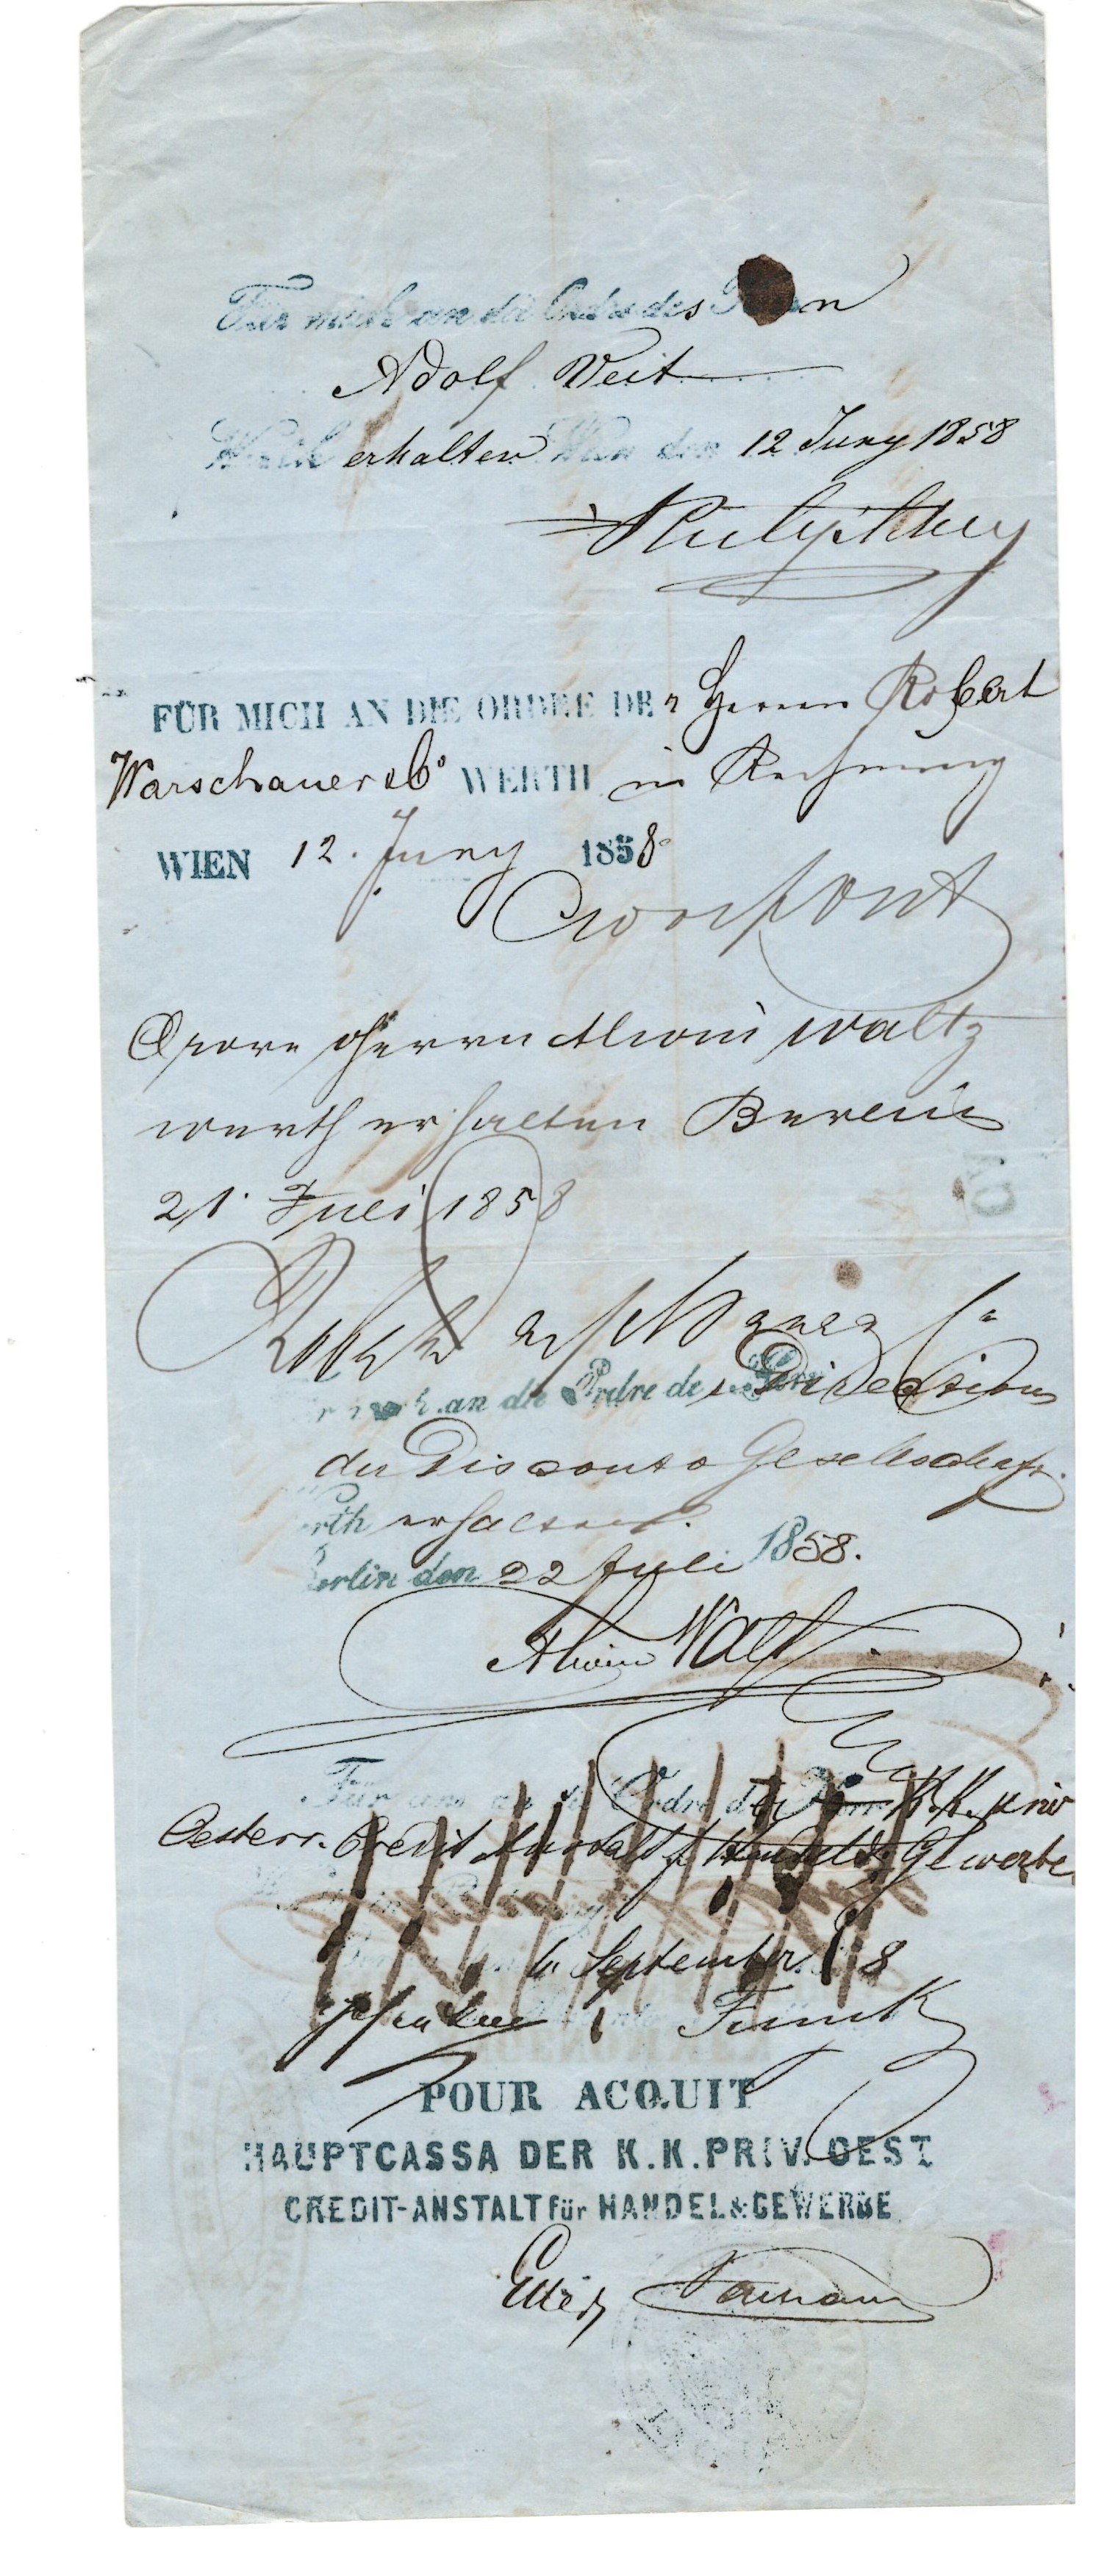 Für mich an die Ordre des
Adolf Veit
Werth erhalten Wien den 12 Juny 1858
FÜR MICH AN DIE ORDRE DEr Herren Robert
Warschauer & Co WERTH in Rechnung
WIEN 12. Juny 1858
Ordre Herrn Alwin Waltz
werth erhalten Berlin
21. Juli 1858
an die Ordre de Direction
der Disconto Gesellschaft.
erhalten.
Berlin den 22 Juli 1858.
Alwin Waltz
Für uns an die Ordre der K. K. priv
Oesterr. Credit Anstalt f. Handel & Gewerbe
September 8
Funk
POUR ACQUIT
HAUPTCASSA DER K.K. PRIV. OEST
CREDIT-ANSTALT für HANDEL & GEWERBE